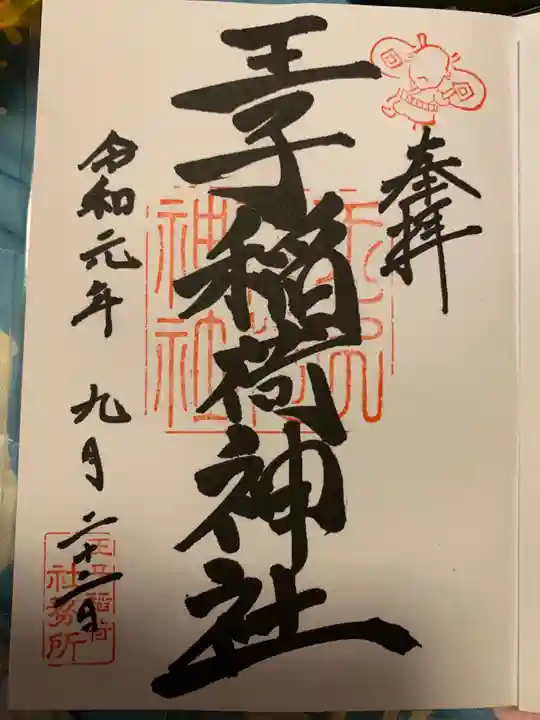 奉拝
王子稲荷神社
令和元年 九月二十二日
王子稲荷
社務所